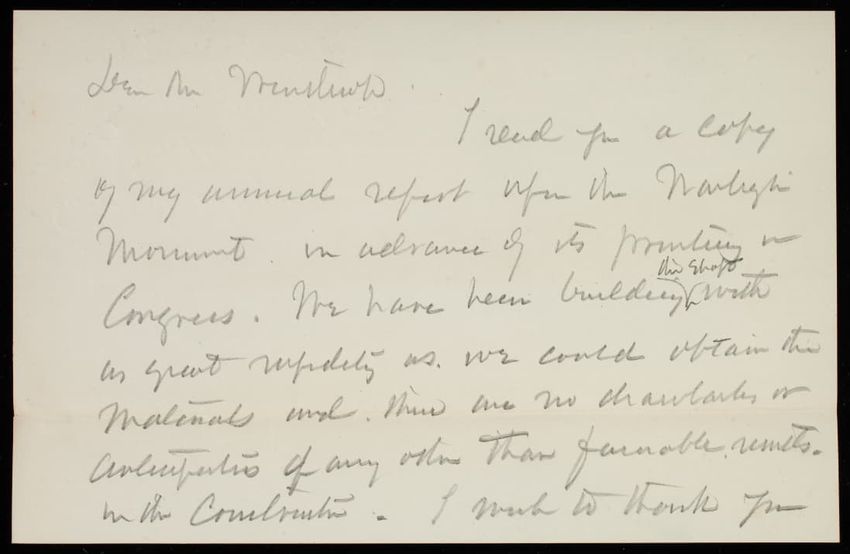 Dear Mr Winthrop.
I send you a copy
of my annual report upon the Washington
Monument in advance of its printing in
Congress. We have been building the shaft with
as great rapidity as we could obtain the
materials and there are no drawbacks or
anticipation of any other than favorable results
in the Construction. I wish to thank you